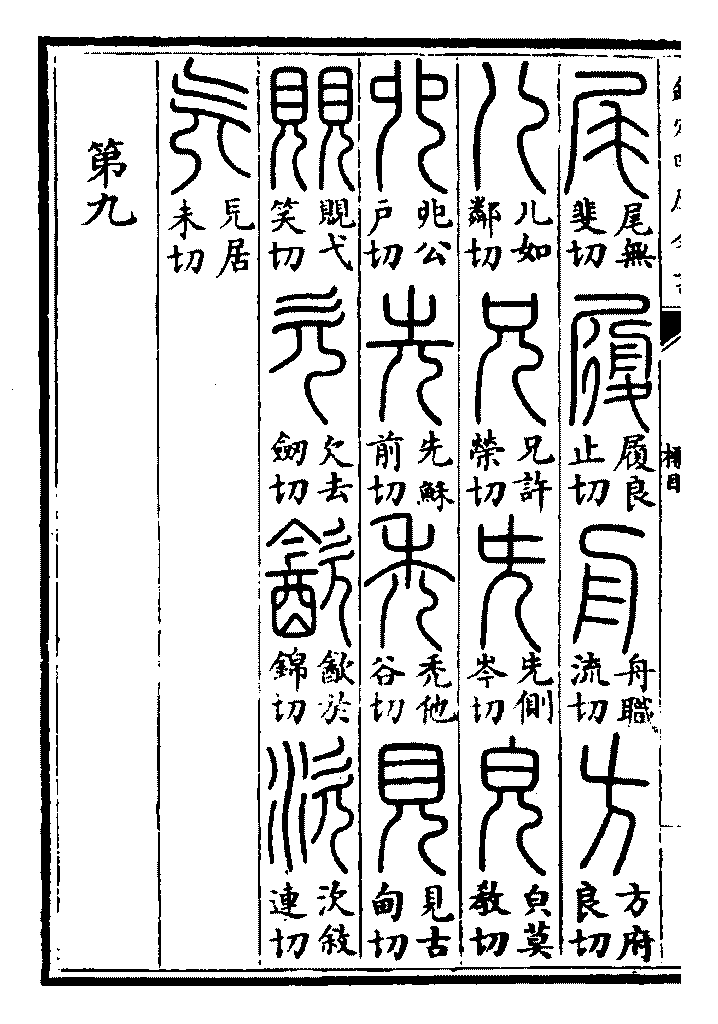 尾 尾無斐切 履 履良止切 舟 舟職流切 方 方府良切
儿 儿如鄰切 兄 兄許榮切 兂 兂側岑切 皃 皃莫教切
𠑹 𠑹公戶切 先 先穌前切 禿 禿他谷切 見 見古甸切
覞 覞弋笑切 欠 欠去劒切 㱃 㱃於錦切 㳄 㳄敍連切
旡 旡居未切
第九